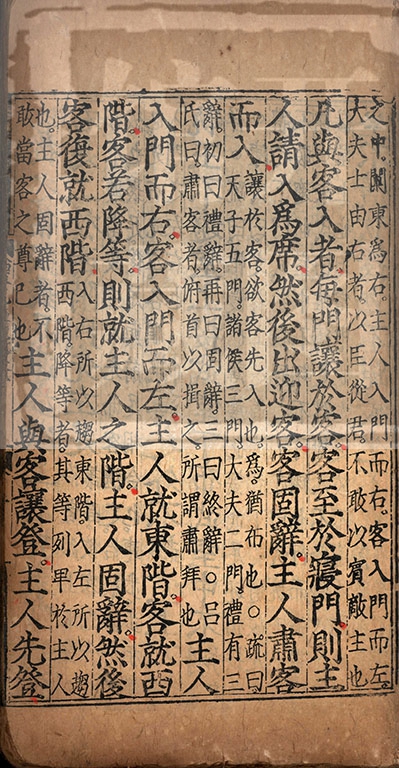 之中。闑東爲右。主人入門而右。客入門而左。
大夫士由右者。以臣從君。不敢以賓敵主也
凡與客入者。每門讓於客。客至於寢門。則主
人請入爲席。然後出迎客。客固辭。主人肅客
而入讓於客。欲客先入也。爲。猶布也○疏曰。
天子五門。諸侯三門。大夫二門。禮有三
辭。初曰禮辭。再曰固辭。三曰終辭○呂
氏曰。肅客者。俯首以揖之。所謂肅拜也主人
入門而右。客入門而左。主人就東階。客就西
階。客若降等。則就主人之階。主人固辭。然後
客復就西階入右所以趨東階。入左所以趨
西階。降等者。其等列卑於主人
也。主人固辭者。不
敢當客之尊己也主人與客讓登。主人先登。